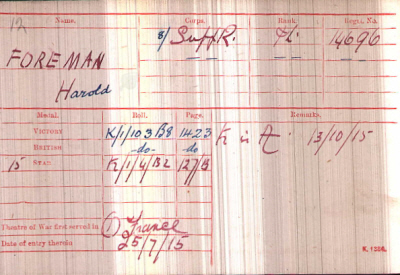 12 Name. Corps. Rank Regtl. No.
FOREMAN 8/Suff R. Pte. 14696
Harold
Medal. Roll. Page. Remarks.
VICTORY K/1/103 B8 1423 K in A 13/10/15
BRITISH -do- -do
15 STAR K/1/4/B2 127B
Theatre of War first served in (1) France
Date of entry therein 25/7/15
K. 1380.